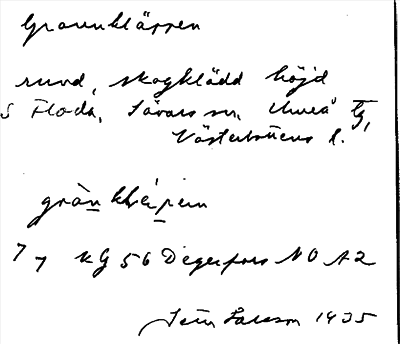 Grannkläppen
rund, skogklädd höjd
S Floda, Sävars sn, Umeå tg,
Västerbottens l.
grànkḷépen
77 KG 56 Degerfors NO A2
Larsson 1935